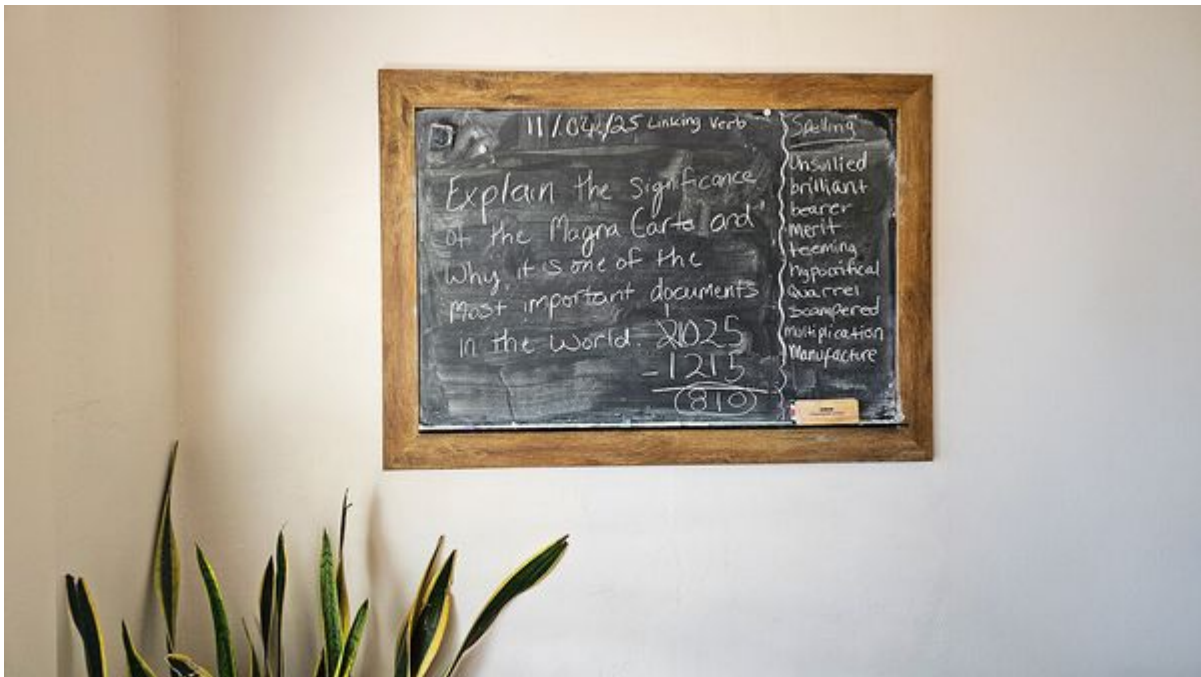 11/04/25 Linking Verb
Explain the significance
of the Magna Carta and
Why it is one of the
Most important documents
in the World.
2025
-1215
810
Spelling
Unsullied
brilliant
bearer
merit
teeming
hypocritical
Quarrel
Scampered
multiplication
Manufacture